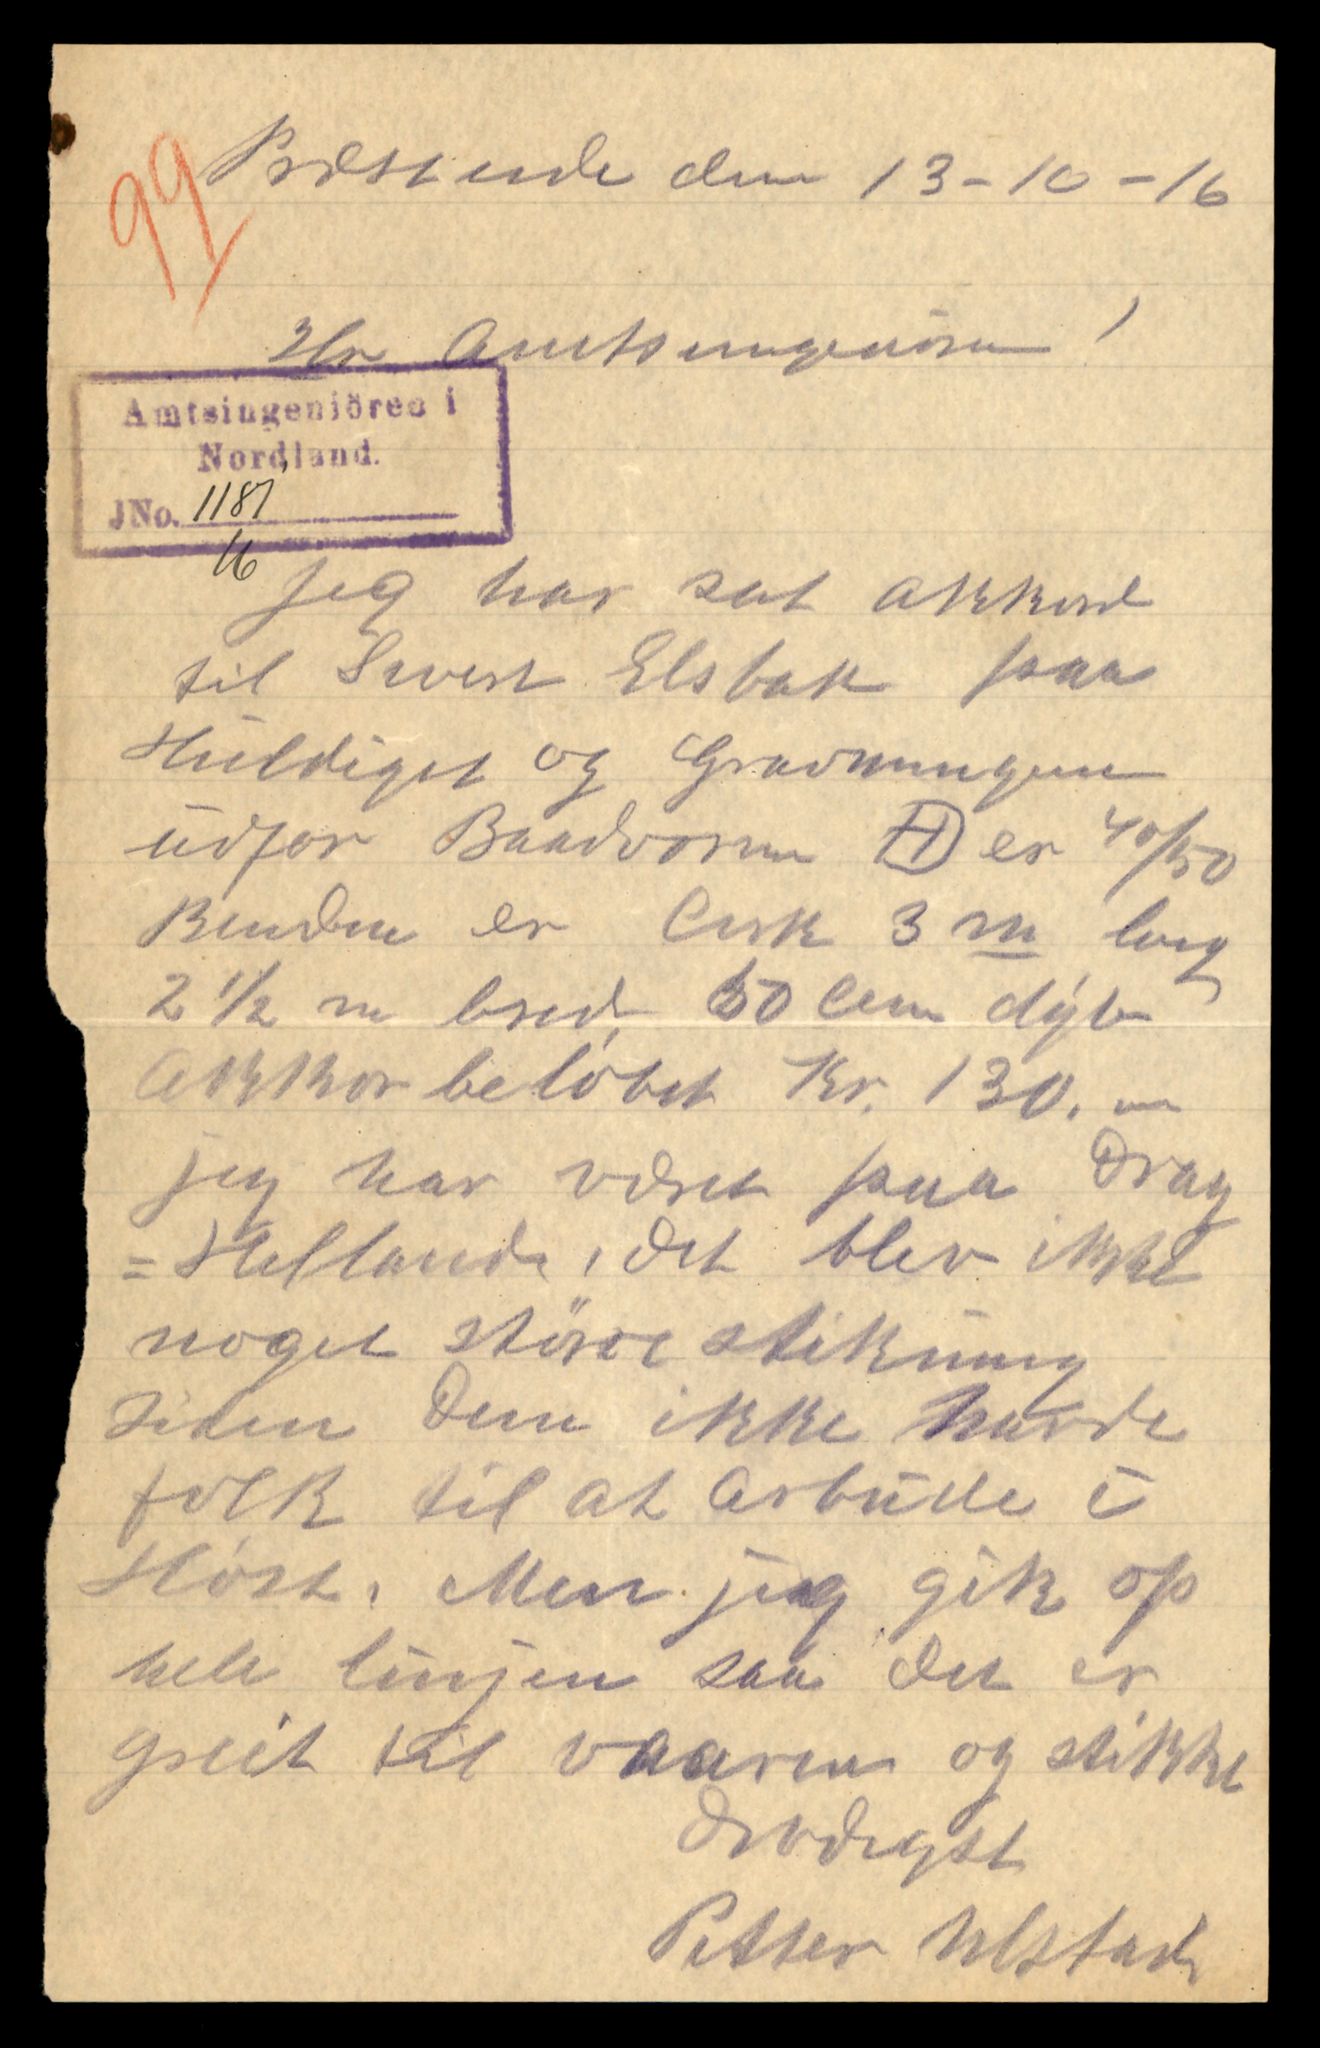 99
Præstende den 13-10-16
Hr Amtsingeniøren!
Amtsingeniören i
Nordland.
JNo. 1187
16
Jeg har sat akkord
til Sivert Elsbak paa
Huldiget og Gravningen
udfor Baadvoren er 40/50
Renden er Cirk 3 m lang
2 1/2 m bred 50 Cem dyb
Akkorbeløbet Kr. 130.
jeg har været paa Drag
= Helland, det blev ikke
noget større stikning
siden Dem ikke havde
folk til at arbeide i
Høst. Men jeg gik op
hele linjen saa det er
greit til vaaren og stikke
Ærbdygst
Petter Ulstad